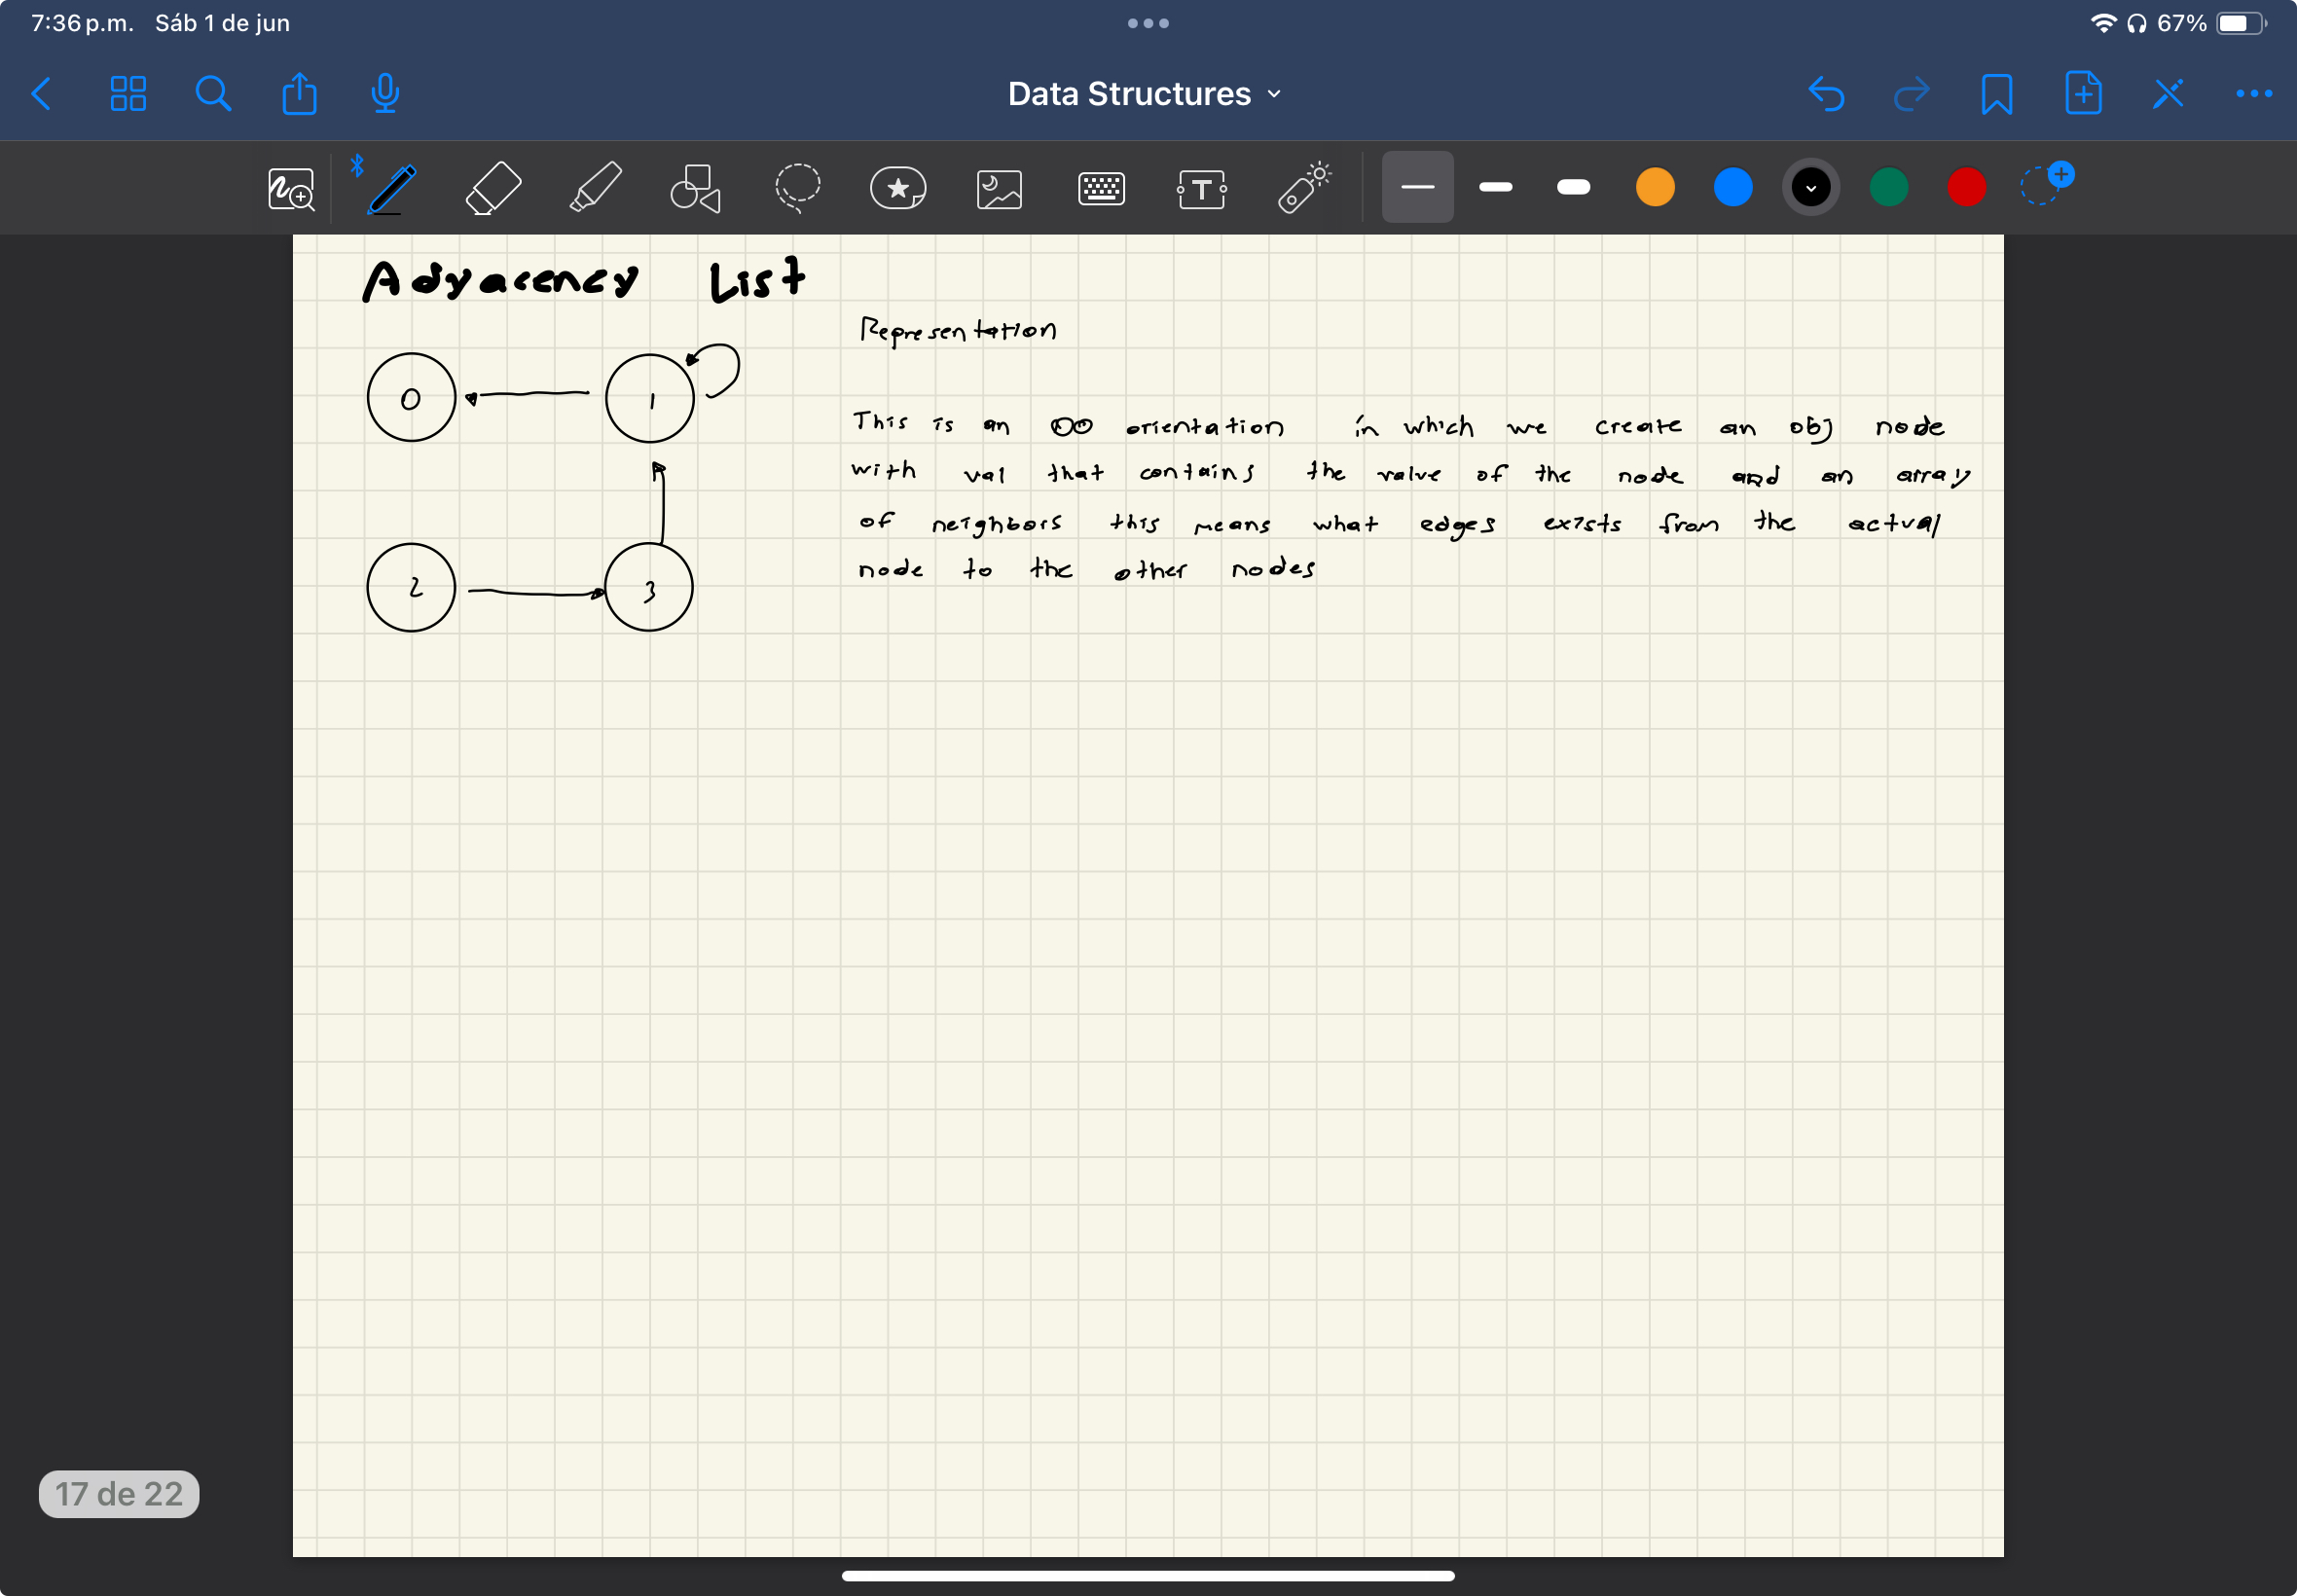 7:36 p.m. Sáb 1 de jun
67%
Data Structures
Adyacency List
Representation
0
1
This is an OO orientation in which we create an obj node
with val that contains the value of the node and an array
of neighbors this means what edges exists from the actual
node to the other nodes
2
3
17 de 22